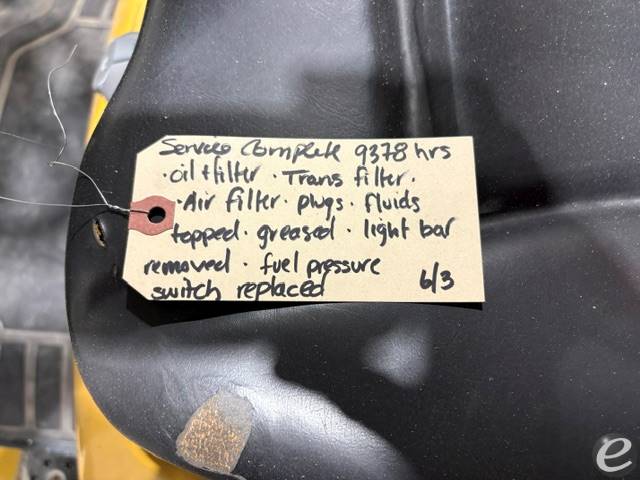 Service Complete 9378 hrs
· oil + filter · Trans filter ·
· Air filter · plugs · fluids
topped · greased · light bar
removed · fuel pressure
switch replaced 6/3
e